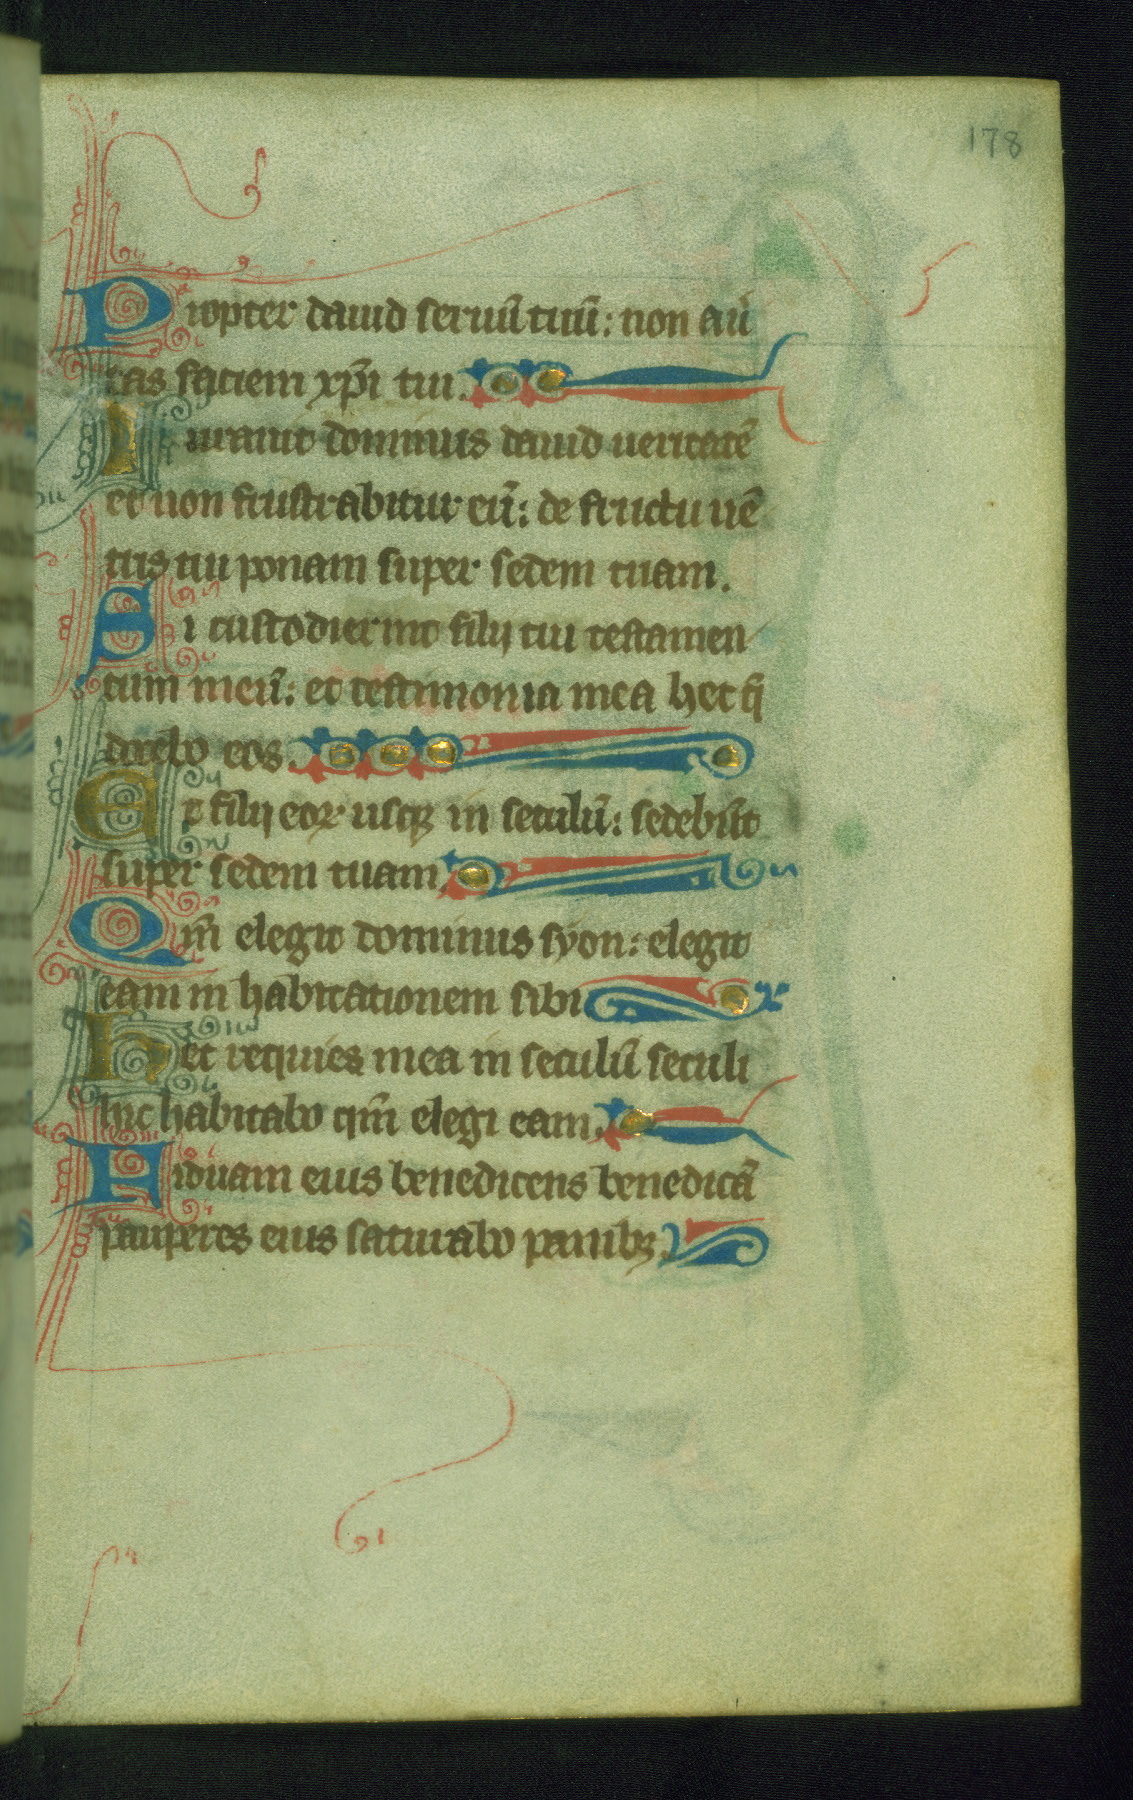 178
Propter dauid seruū tuū: non au̾
tas faciem xp̄i tui.
Iurauit dominus dauid ueritatē
et non frustrabitur eū: de fructu uē
tris tui ponam super sedem tuam.
Si custodierint filij tui testamen
tum meū: et testimonia mea hec q̄
docebo eos.
Et filij eoꝝ usqꝫ in seculū: sedebūt
super sedem tuam.
Qm̄ elegit dominus syon: elegit
eam in habitationem sibi
Hec requies mea in seculū seculi
hic habitabo qm̄ elegi eam.
Uiduam eius benedicens benedicā
pauperes eius saturabo panibꝫ.